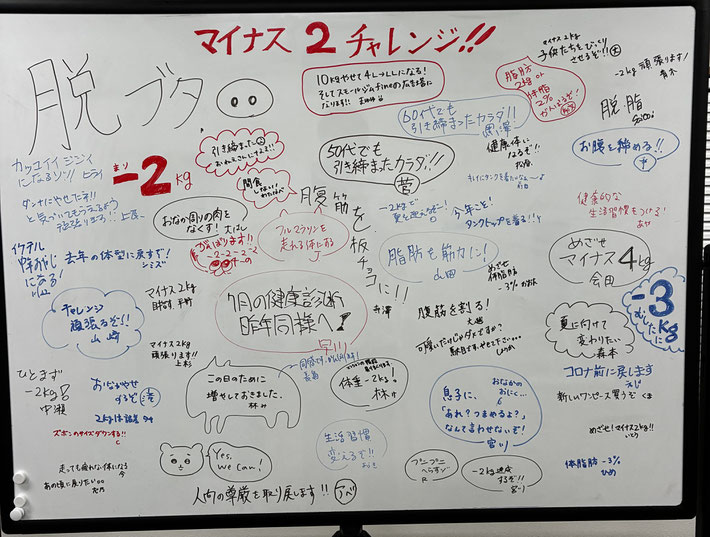 マイナス2チャレンジ!!
脱ブタ
10kgやせて4L→LLになる!
マイナス2kg
子供たちをびっくり
させるぞ!!
-2kg 頑張ります!
青木
脂肪
2kg or
体脂
2%
がんばるぞ!
脱脂
60代でも
引き締まったカラダ!!
黒澤
引き締まった
50代でも
引き締まったカラダ!!
菅
健康体に
なるぞ!!
お腹を締める!!
カッコイイジジイ
になるゾ!! ヒライ
-2kg
間食
しない!
ダンナにやせたネ!!
と気づいてもらえるよう
頑張りまう!!
おなか周りの肉を
なくす! 大ばし
がんばります!!
-2-2-2-2
腹筋を板チョコに!!
寺澤
フルマラソンを
走れる体になる
J
-2kgで
今年こそ
タンクトップを着る!!Y
健康的な
生活習慣をつける!
あや
イケテル
になる!
去年の体型に戻すぞ!
シミズ
脂肪を筋力に!
山田
めざせ
体脂肪
-3%
めざせ
マイナス4kg
会田
-3kg
7月の健康診断
昨年同様へ!
早川
チャレンジ
頑張るぞう!!
山崎
マイナス2kg
目指す 平野
マイナス2kg
頑張ります!!
上杉
腹筋を割る!
大越
可愛いだけじゃダメですか?
夏に向けて
変わりたい
森本
ひとまず
-2kg
中瀬
おなかやせ
するぞ
この日のために
増やしておきました。
林み
体重-2kg!
林け
息子に、
おなかの
おにく…
「あれ?つまめるよ?」
なんて言わせないぞ!
宮い
コロナ前に戻します
えじ
新しいワンピース買うぞ くま
ズボンのサイズダウンする!!
C
めざせ!マイナス2kg!!
いとう
走っても疲れない体になる
今
あの頃に戻りたい
Yes,
We can!
生活習慣
変えるぞ!!
プニプニ
へらすゾ
R
-2kg達成
するぞ!!
体脂肪 -3%
ひめ
人間の尊厳を取り戻します!! アベ